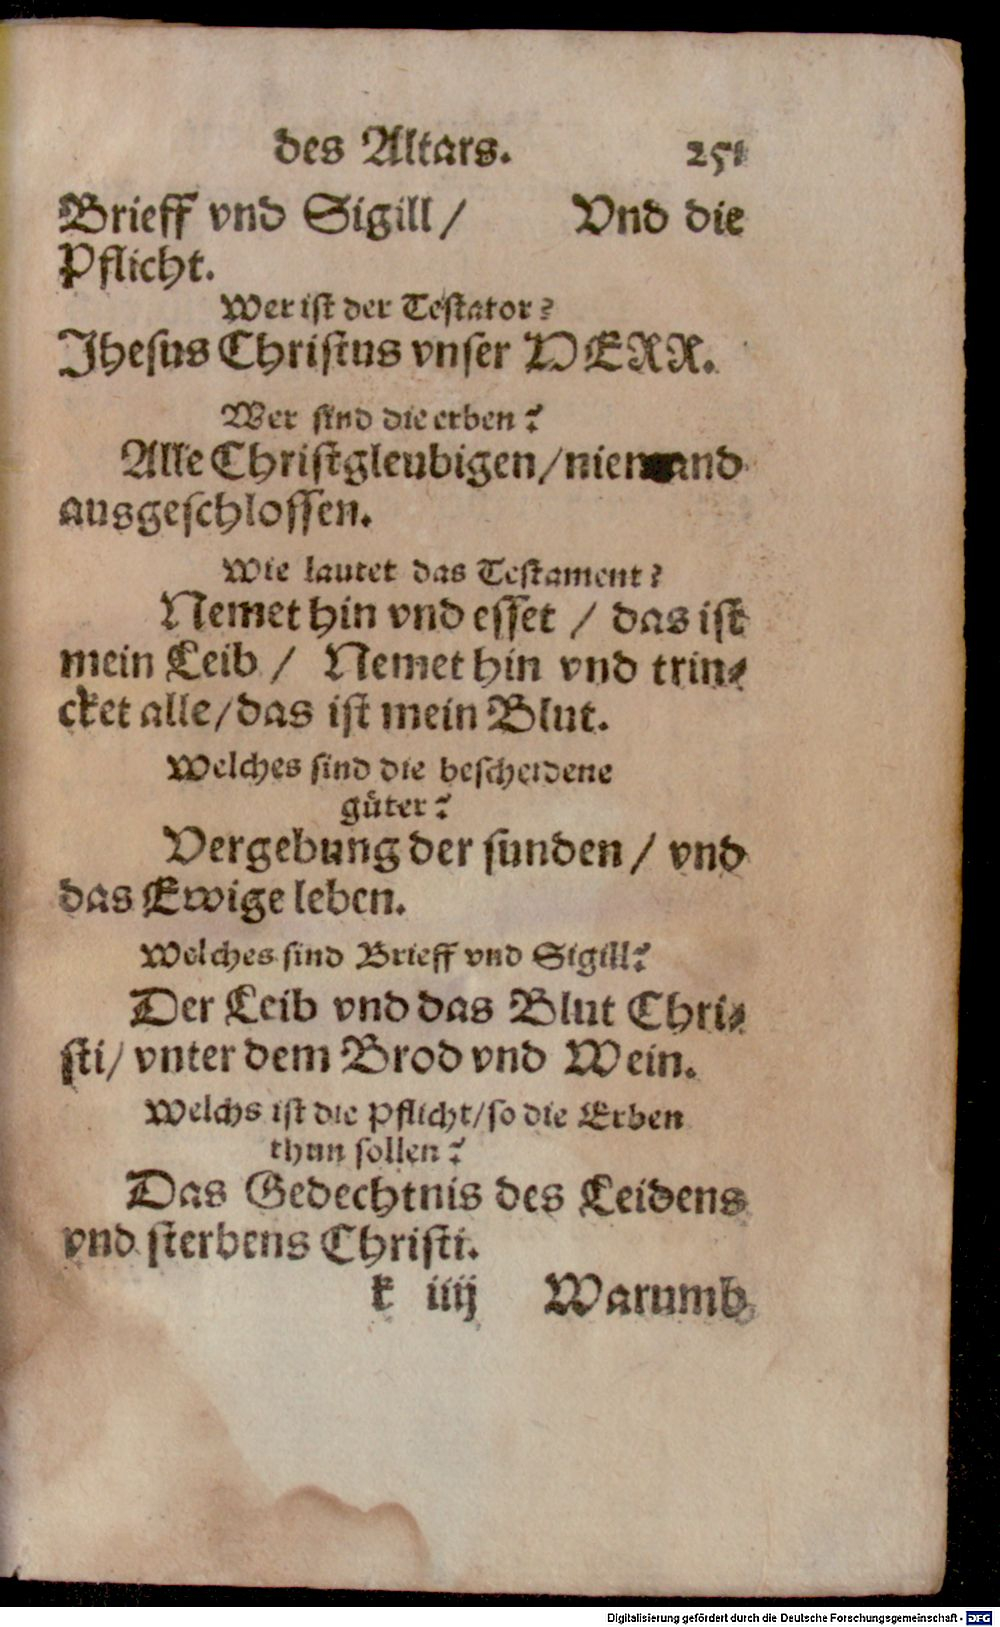 des Altars. 251
Brieff vnd Sigill / Vnd die
Pflicht.
Wer ist der Testator?
Jhesus Christus vnser HERR.
Wer sind die erben?
Alle Christgleubigen/niemand
ausgeschlossen.
Wie lautet das Testament?
Nemet hin vnd esset / das ist
mein Leib / Nemet hin vnd trin-
cket alle/das ist mein Blut.
Welches sind die bescheidene
güter?
Vergebung der sunden / vnd
das Ewige leben.
Welches sind Brieff vnd Sigill?
Der Leib vnd das Blut Chri-
sti/ vnter dem Brod vnd Wein.
Welchs ist die Pflicht/so die Erben
thun sollen?
Das Gedechtnis des Leidens
vnd sterbens Christi.
k iiij Warumb
Digitalisierung gefördert durch die Deutsche Forschungsgemeinschaft - DFG